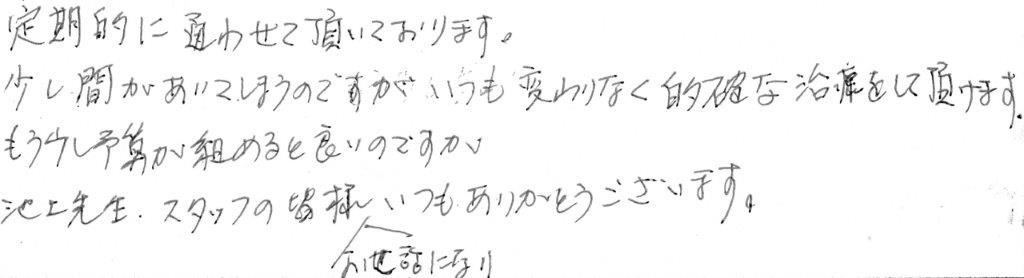 定期的に通わせて頂いております。
少し間があいてしまうのですが いつも変わりなく的確な治療をして頂けます。
もう少し予算が組めると良いのですが
池上先生.スタッフの皆様いつもありがとうございます。
お世話になり